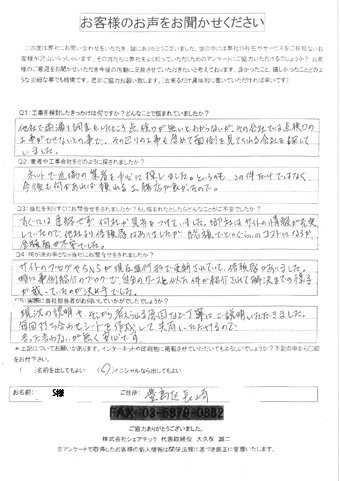 お客様のお声をお聞かせください
この度は弊社にお問い合わせをいただき、誠にありがとうございました。世の中には弊社の存在やサービスをご存知ないお
客様が沢山いらっしゃいます。その方たちに弊社をよく知っていただくためのアンケートにご協力いただけるでしょうか?お客
様のご意見をお聞かせいただき今後の活動に反映させていただきたいと考えております。良かったこと、嬉しかったことどのよ
うな些細な事でも結構です。是非ご協力お願い致します。(出来るだけ具体的に書いていただければ幸いです)
Q1:工事を検討したきっかけは何ですか?どんなことで悩まれていましたか?
他社で雨漏り調査をしたところ点検口が無いとわからないが、その会社では点検口の
工事ができないとの事で、その辺りの工事も含めて面倒を見てくれる会社を探して
いました。
Q2:業者や工事会社をどのように探されましたか?
ネットで近隣の業者を中心に探しました。というのも、この件だけではなく、
今後も何かあれば頼れる工務店が良かったので。
Q3:当社を知りすぐにお問合せをされますか?もし悩まれたとしたらどんなことがご不安でしたか?
すぐには連絡せず、何社か見当をつけていました。御社はサイトの情報が充実
していたので、他社より信頼感はありましたが、総額でいくらくらいのコストになるか
金額面が不安でした。
Q4:何が決め手となり当社にお問合せをされましたか?
サイトのブログやSNSが現在進行形で更新されていて、信頼感がありました。
特に事例紹介のブログで、自分のケースと似た件が紹介されて解決までの様子
が載っていたのが決め手でした。
Q5:実際に当社担当者がお伺いしていかがでしたでしょうか?
現況の説明や、そこから考えられる原因など丁寧にご説明いただきました。
毎回打ち合わせシートを作成して共有いただけるので
言った言わないが無く安心です。
*上記についてお願いがあります。インターネットや印刷物に掲載させていただいてもよろしいでしょうか?下記の中から○印
をお付下さい。
( )名前を出してもよい (○)イニシャルなら出してもよい
お名前: S様 ご住所: 豊島区長崎
FAX 03-5879-0882
ご協力ありがとうございました。
株式会社シェアテック 代表取締役 大久保 誠二
※アンケートで取得したお客様の個人情報は関係法規に基づき厳正に管理いたします。